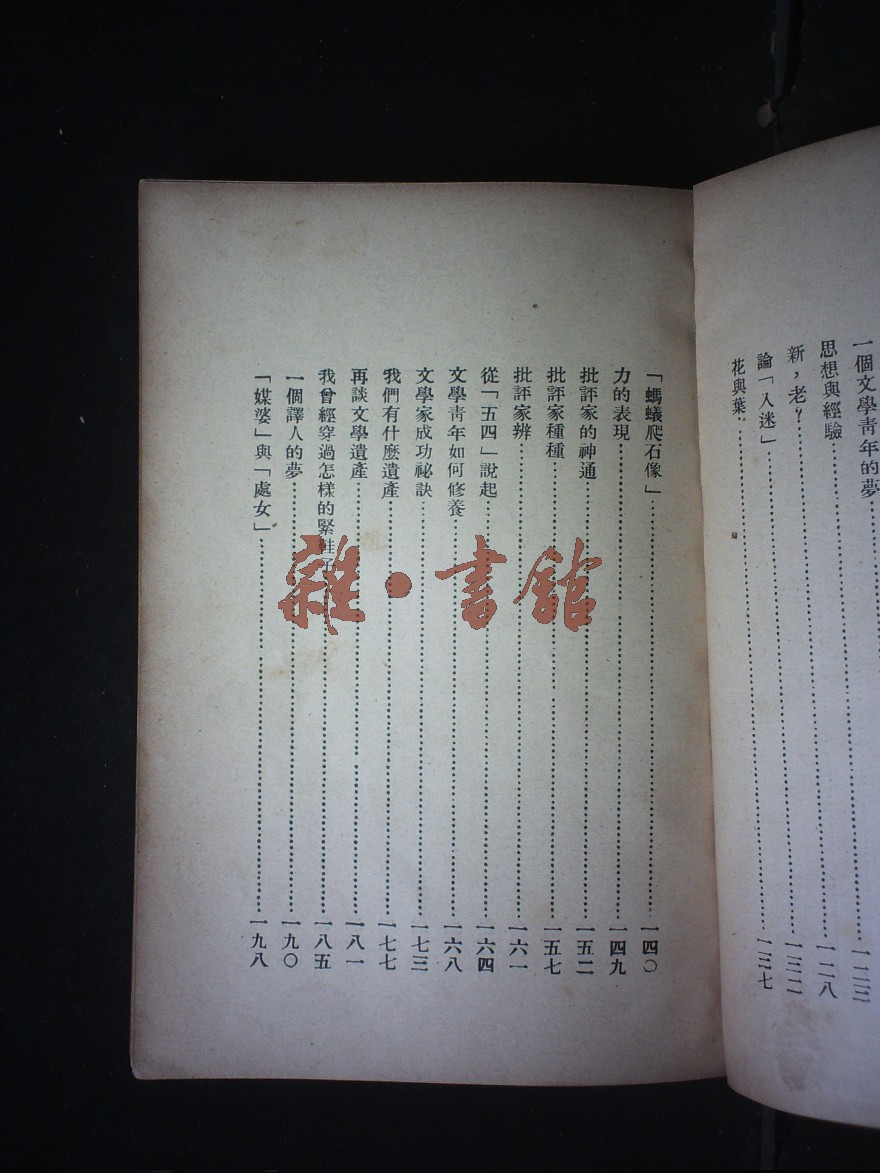 一個文學靑年的夢……一二三
思想與經驗……一二八
新，老？……一三二
論「入迷」……一三七
花與葉……
「螞蟻爬石像」……一四〇
力的表現……一四九
批評家的神通……一五二
批評家種種……一五七
批評家辨……一六一
從「五四」說起……一六四
文學靑年如何修養……一六八
文學家成功祕訣……一七三
我們有什麼遺產……一七七
再談文學遺產……一八一
我曾經穿過怎樣的緊鞋子……一八五
一個譯人的夢……一九〇
「媒婆」與「處女」……一九八
雜·書館